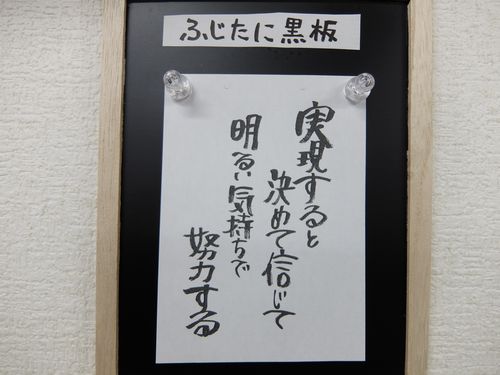 ふじたに黒板
実現すると
決めて信じて
明るい気持ちで
努力する